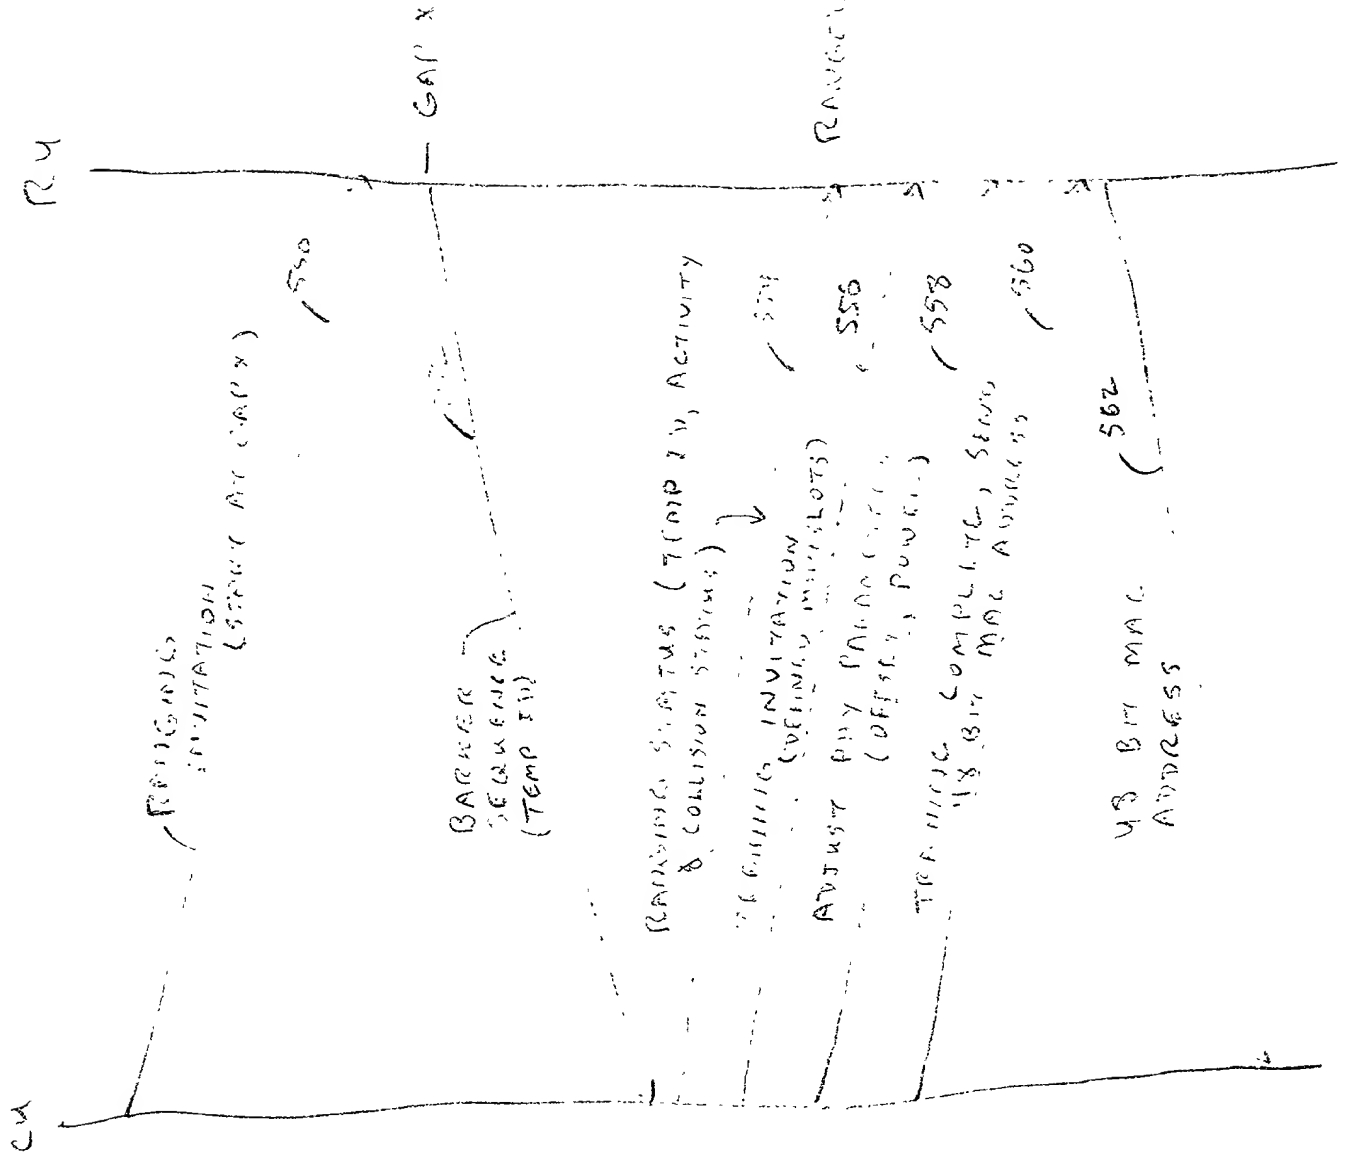 CU
RU
RANGING
INVITATION
(START AT GAP X)
540
GAP X
BARKER
SEQUENCE
(TEMP ID)
RANGING STATUS (TEMP ID, ACTIVITY
& COLLISION STATUS)
554
TRAINING INVITATION
(DEFINED MINISLOTS)
556
ADJUST PHY PARAMETERS
(OFFSET, POWER)
558
TRAINING COMPLETE, SEND
48 BIT MAC ADDRESS
560
562
48 BIT MAC
ADDRESS